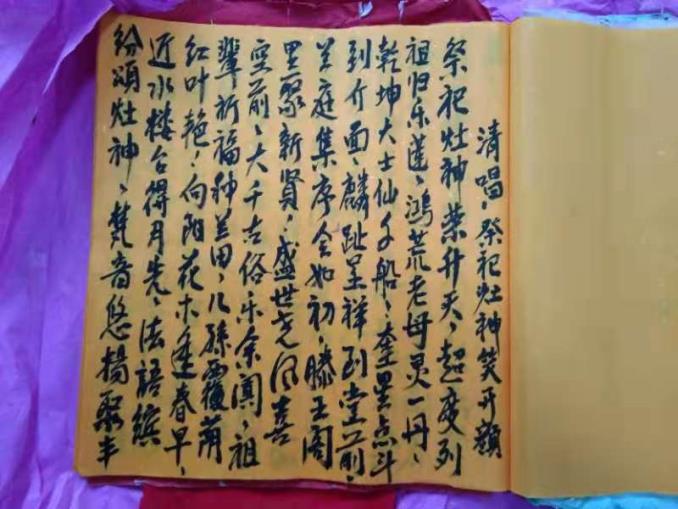 清唱：祭祀灶神笑开颜
祭祀灶神荣升天，超度列
祖归乐莲，鸿荒老母灵一丹，
乾坤大士仙子船，奎星点斗
到介面，麟趾呈祥到堂前，
兰庭集序会如初，滕王阁
里聚新贤，盛世尧风喜
空前，大千古俗乐余闻，祖
辈祈福种兰田，儿孙西覆荫
红叶艳，向阳花木逢春早，
近水楼台得月先，法语缤
纷颂灶神，梵音悠扬聚丰